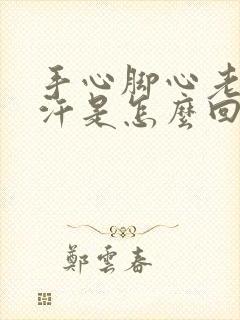 手心脚心老
汗是怎麼回
鄭雲春